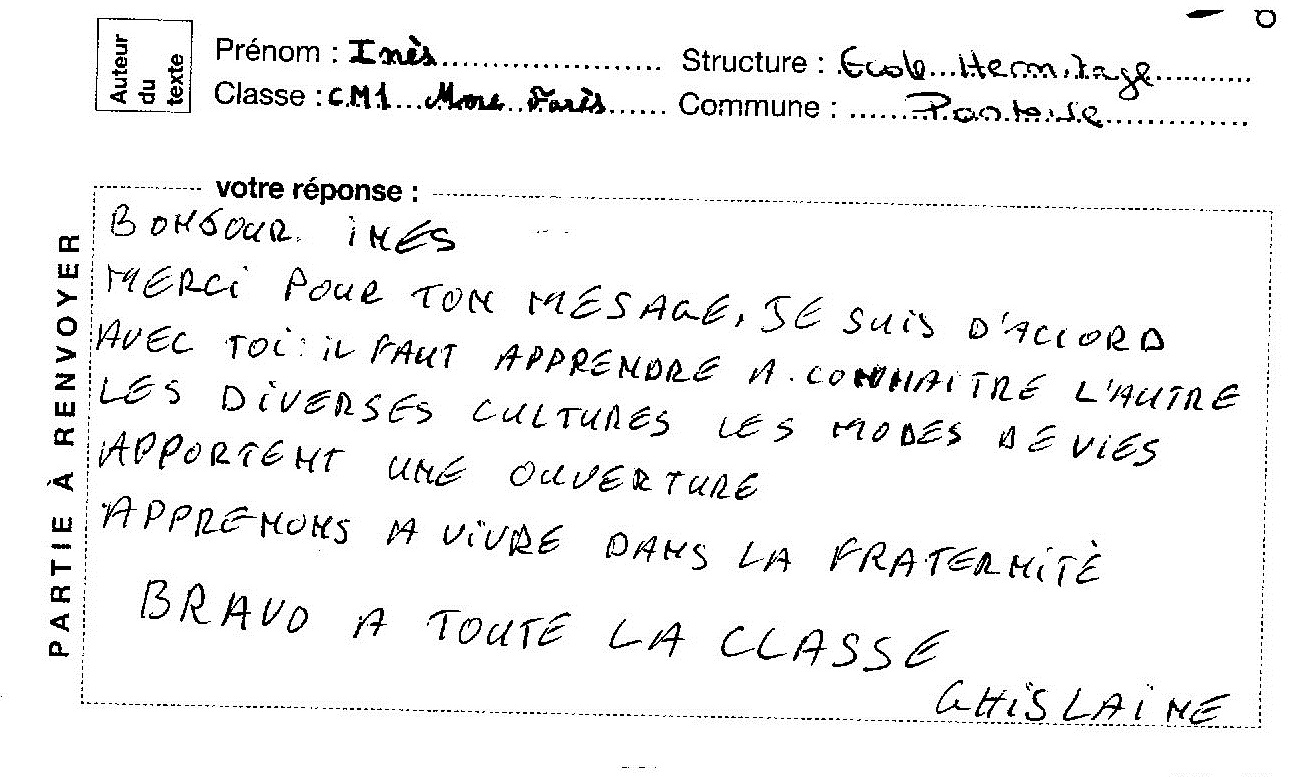 Auteur du texte
Prénom : Inès Structure : Ecole Hermitage
Classe : CM1 Mme Farès Commune : Pontoise
votre réponse :
PARTIE À RENVOYER
BONJOUR INES
MERCI POUR TON MESAGE, JE SUIS D'ACCORD
AVEC TOI : IL FAUT APPRENDRE A CONNAITRE L'AUTRE
LES DIVERSES CULTURES LES MODES DE VIES
APPORTENT UNE OUVERTURE
APPRENONS A VIVRE DANS LA FRATERNITÈ
BRAVO A TOUTE LA CLASSE
GHISLAINE